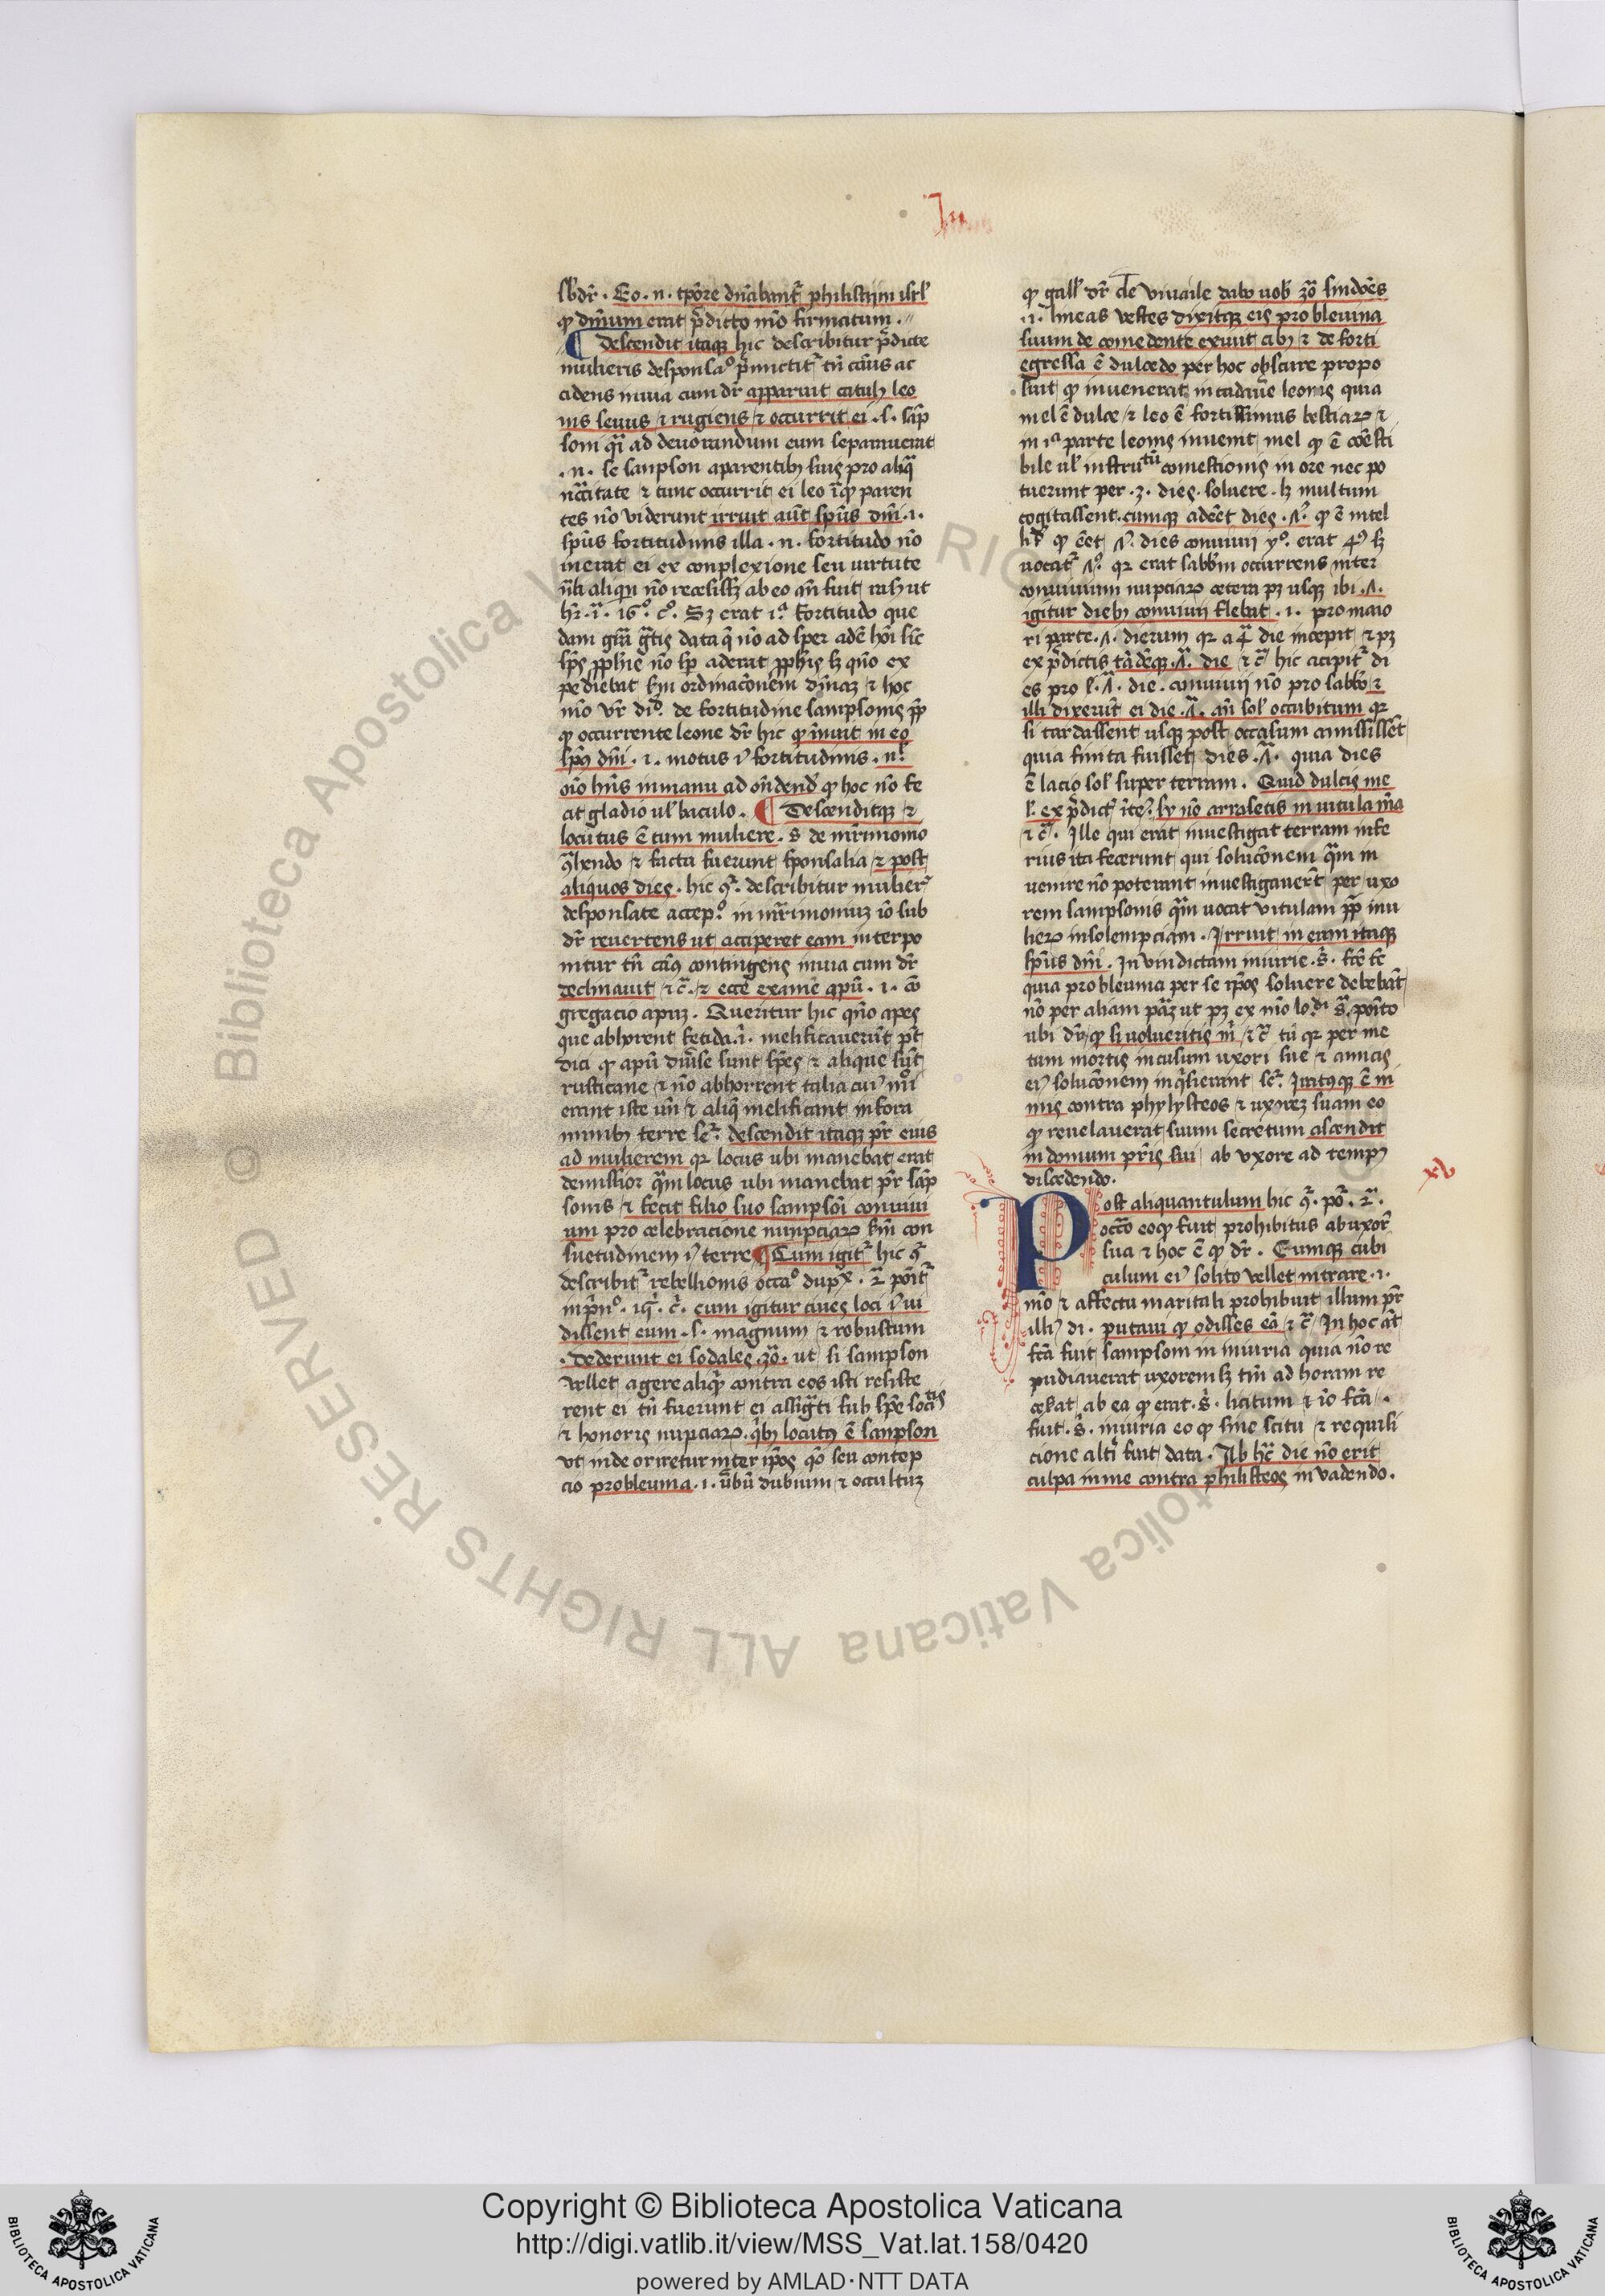 sbdr̄ . Eo . n . tp̄ore dn̄abant᷑ philistijm isrl̓
ꝙ dn̄ium erat p̄dicto mō firmatum .
¶ Descendit itaqꝫ hic describitur p̄dicte
mulieris desponsaͦ p̄mictit᷑ tn̄ casus ac
cidens in uia cum dr̄ apparuit catulꝯ leo
nis seuus ⁊ rugiens ⁊ occurrit ei . s . sāp
som q̄i ad deuorandum eum separauerat
. n . se sanpson aparentibꝫ suis pro aliq̄
nc̄citate ⁊ tunc occurrit ei leo
tes nō viderunt irruit aūt sp̄us dn̄i . i .
sp̄us fortitudinis illa . n . fortitudo nō
inerat ei ex conplexione seu uirtute
hr̄ . iᷓ . 16ͦ . cͦ . Sꝫ erat 1ᵃ fortitudo que
dam gr̄a gr̄tis data
pediebat sm̄ ordinac̄onem diuinaꝫ ⁊ hoc
mō vr̄ diͫ . de fortitudine sampsonis
ꝙ occurrente leone dr̄ hic ꝙ irruit in eo
sp̄ꝯ dn̄i . i . motus fortitudinis .
oīo hn̄s in manu ad on̄dend̓ ꝙ hoc nō fe
at gladio ul̓ baculo . ¶ Descenditqꝫ ⁊
locutus ē cum muliere . s̓ de mr̄imonio
q̄hendo ⁊ facta fuerunt sponsalia ⁊ post
aliquos dies . hic ꝯ᷑ . describitur mulier᷑
desponsate accepͦ . in mr̄imoniuꝫ iō sub
dr̄ reuertens ut acciperet eam interpo
nitur tn̄ casꝯ contingens in uia cum dr̄
declinauit ⁊ c᷑ . ⁊ ecce examē apū . i . cō
gregacio apuꝫ . Queritur hic qn̄o apes
que abhorent fetida . i᷑ . melificauerūt pt̄
dici ꝙ apū diuerse sunt sp̄es ⁊ alique sūt
rusticane ⁊ nō abhorrent talia
erant iste un̄ ⁊ aliq̄ melificant in fora
minibꝫ terre seᷓ . descendit itaqꝫ pr̄ eius
ad mulierem qꝛ locus ubi manebat erat
demissior q̄m locus ubi manebat pr̄ sāp
sonis ⁊ fecit filio suo sampsoī conuiui
um pro celebracione nupciaꝝ sm̄ con
suetudinem terre ¶ Cum igit᷑ hic ꝯ᷑
describit᷑ rebellionis occaͦ dupˣ . ⁊᷑ poīt᷑
inp̄nͦ . cum igitur ciues loci ui
dissent eum . s . magnum ⁊ robustum
. dederunt ei sodales . 30 . ut si sampson
vellet agere aliq̄ contra eos isti resiste
rent ei tn̄ fuerunt ei assigti sub sp̄e sociᵗⁱˢ
⁊ honoris nupciaꝝ . q̄bꝫ locutꝯ ē sanpson
vt inde oriretur inter ip̄os qō seu contep
cio probleuma . i . ūbū dubium ⁊ occultuꝫ
ꝙ gall̓ dr̄ de viuaile dabo uob̓ 30 sindoēs
. i . lineas vestes dixitqꝫ eis probleuma
suum de comedente exiuit cibꝯ ⁊ de forti
egressa ē dulcedo per hoc obscure propo
suit ꝙ inuenerat in cadauēe leonis quia
mel ē dulce ⁊ leo ē fortissimus bestiaꝝ ⁊
in 1ᵃ parte leonis inuenit mel ꝙ ē coēsti
bile ul̓ instruᵗū comestionis in ore nec po
tuerunt per . 3 . dies . soluere . lꝫ multum
cogitassent . cumqꝫ adeēt dies . 7ꝯ . ꝙ ē intel
li᷑ ꝙ eēt 7ꝯ . dies conuiuij yͦ . erat 4ꝯ sꝫ
uocat᷑ 7ꝯ . qꝛ erat sabbm̄ occurrens inter
conuiuium nupciaꝝ cetera pꝫ usqꝫ ibi . 7 .
igitur diebꝫ conuiuij flebat . i . pro maio
ri parte . 7 . dierum qꝛ a 4ᵃ die incepit ⁊ pꝫ
ex p̄dictis tādēqꝫ . 7ᵃ . die ⁊ c᷑ hic acipit᷑ di
es pro s̓ . 7ᵃ . die . conuiuij nō pro sabbō ⁊
illi dixerūt ei die . 7ᵃ . an̄ sol̓ occubitum qꝛ
si tardassent usqꝫ post occasum amisissēt
quia finita fuisset dies . 7ᵃ . quia dies
ē lacio sol̓ super terram . Quid dulciꝯ me
l̓ . ex p̄dict᷑ sy nō arrasetis in uitula m̄a
⁊ c᷑ . Ille qui erat inuestigat terram infe
rius ita fecerunt qui soluc̄onem q̄m in
uenire nō poterant inuestigauer̄t per uxo
rem sampsonis q̄m uocat vitulam pp̄ mu
lieꝝ insolempciam . Irruit in eum itaqꝫ
sp̄us dn̄i . In vindictam iniurie . s̓ . fcē
quia probleuma per se ip̄os soluere debebāt
nō per aliam
ubi dr̄ ꝙ si uolueritis m̄ ⁊ c᷑ tū qꝛ per me
tum mortis incusum uxori sue ⁊ amicis
eiꝯ soluc̄onem inq̄sierant sc᷑ . Iratusqꝫ ē ni
mis contra phylysteos ⁊ uxorez suam eo
ꝙ reuelauerat suum secretum ascendit
in domum pr̄is sui ab vxore ad tempꝯ
discedendo .
Post aliquantulum hic ꝯ᷑ . pō . 2ᵃ .
occo̅ eoꝙ fuit prohibitus ab uxor᷑
sua ⁊ hoc ē ꝙ dr̄ . Cumqꝫ cubi
culum eiꝯ solito vellet intrare . i .
mō ⁊ affectu maritali prohibuit illum pr̄
illiꝯ di . putaui ꝙ odisses eā ⁊ c᷑ In hoc at̄
fcā fuit sampsom in iniuria quia nō re
pudiauerat uxorem sꝫ tm̄ ad horam re
cesat ab ea ꝙ erat . s̓ . licitum ⁊ iō fcā .
fuit . s̓ . iniuria eo ꝙ sine scitu ⁊ requisi
cione alti᷑ fuit data . Ab hc̄ die nō erit
culpa in me contra philisteos in vadendo .
xv
© Biblioteca Apostolica Vaticana ALL RIGHTS RESERVED
Copyright © Biblioteca Apostolica Vaticana
http://digi.vatlib.it/view/MSS_Vat.lat.158/0420
powered by AMLAD·NTT DATA
BIBLIOTECA APOSTOLICA VATICANA
BIBLIOTECA APOSTOLICA VATICANA